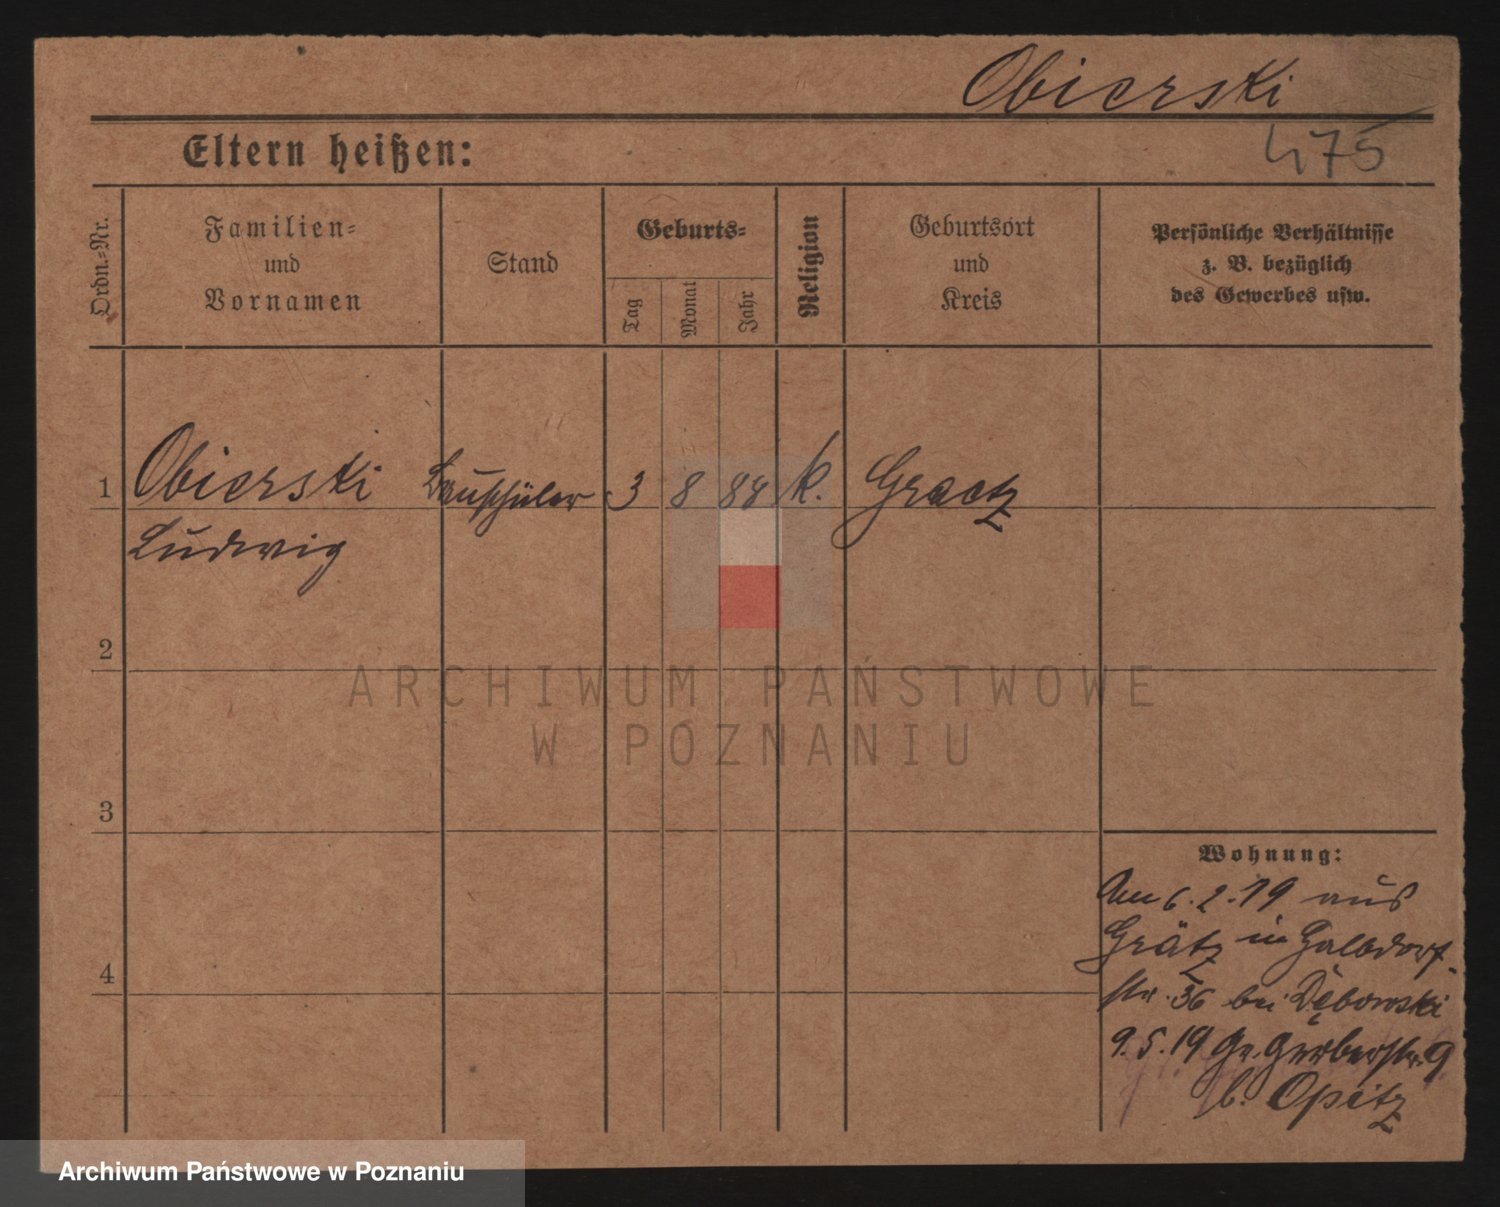 Obierski
475
Eltern heißen:
Ordn.-Nr.
Familien-
und
Vornamen
Stand
Geburts-
Tag
Monat
Jahr
Religion
Geburtsort
und
Kreis
Persönliche Verhältnisse
z. B. bezüglich
des Gewerbes usw.
1 Obierski Bauschüler 3 8 88 k. Graetz
Ludwig
2
3
4
Wohnung:
Am 6.2.19 aus
Grätz in
str. 36 bei Dębowski
9.5.19 Gr. Gerberstr. 9
b. Opitz
ARCHIWUM PAŃSTWOWE
W POZNANIU
Archiwum Państwowe w Poznaniu